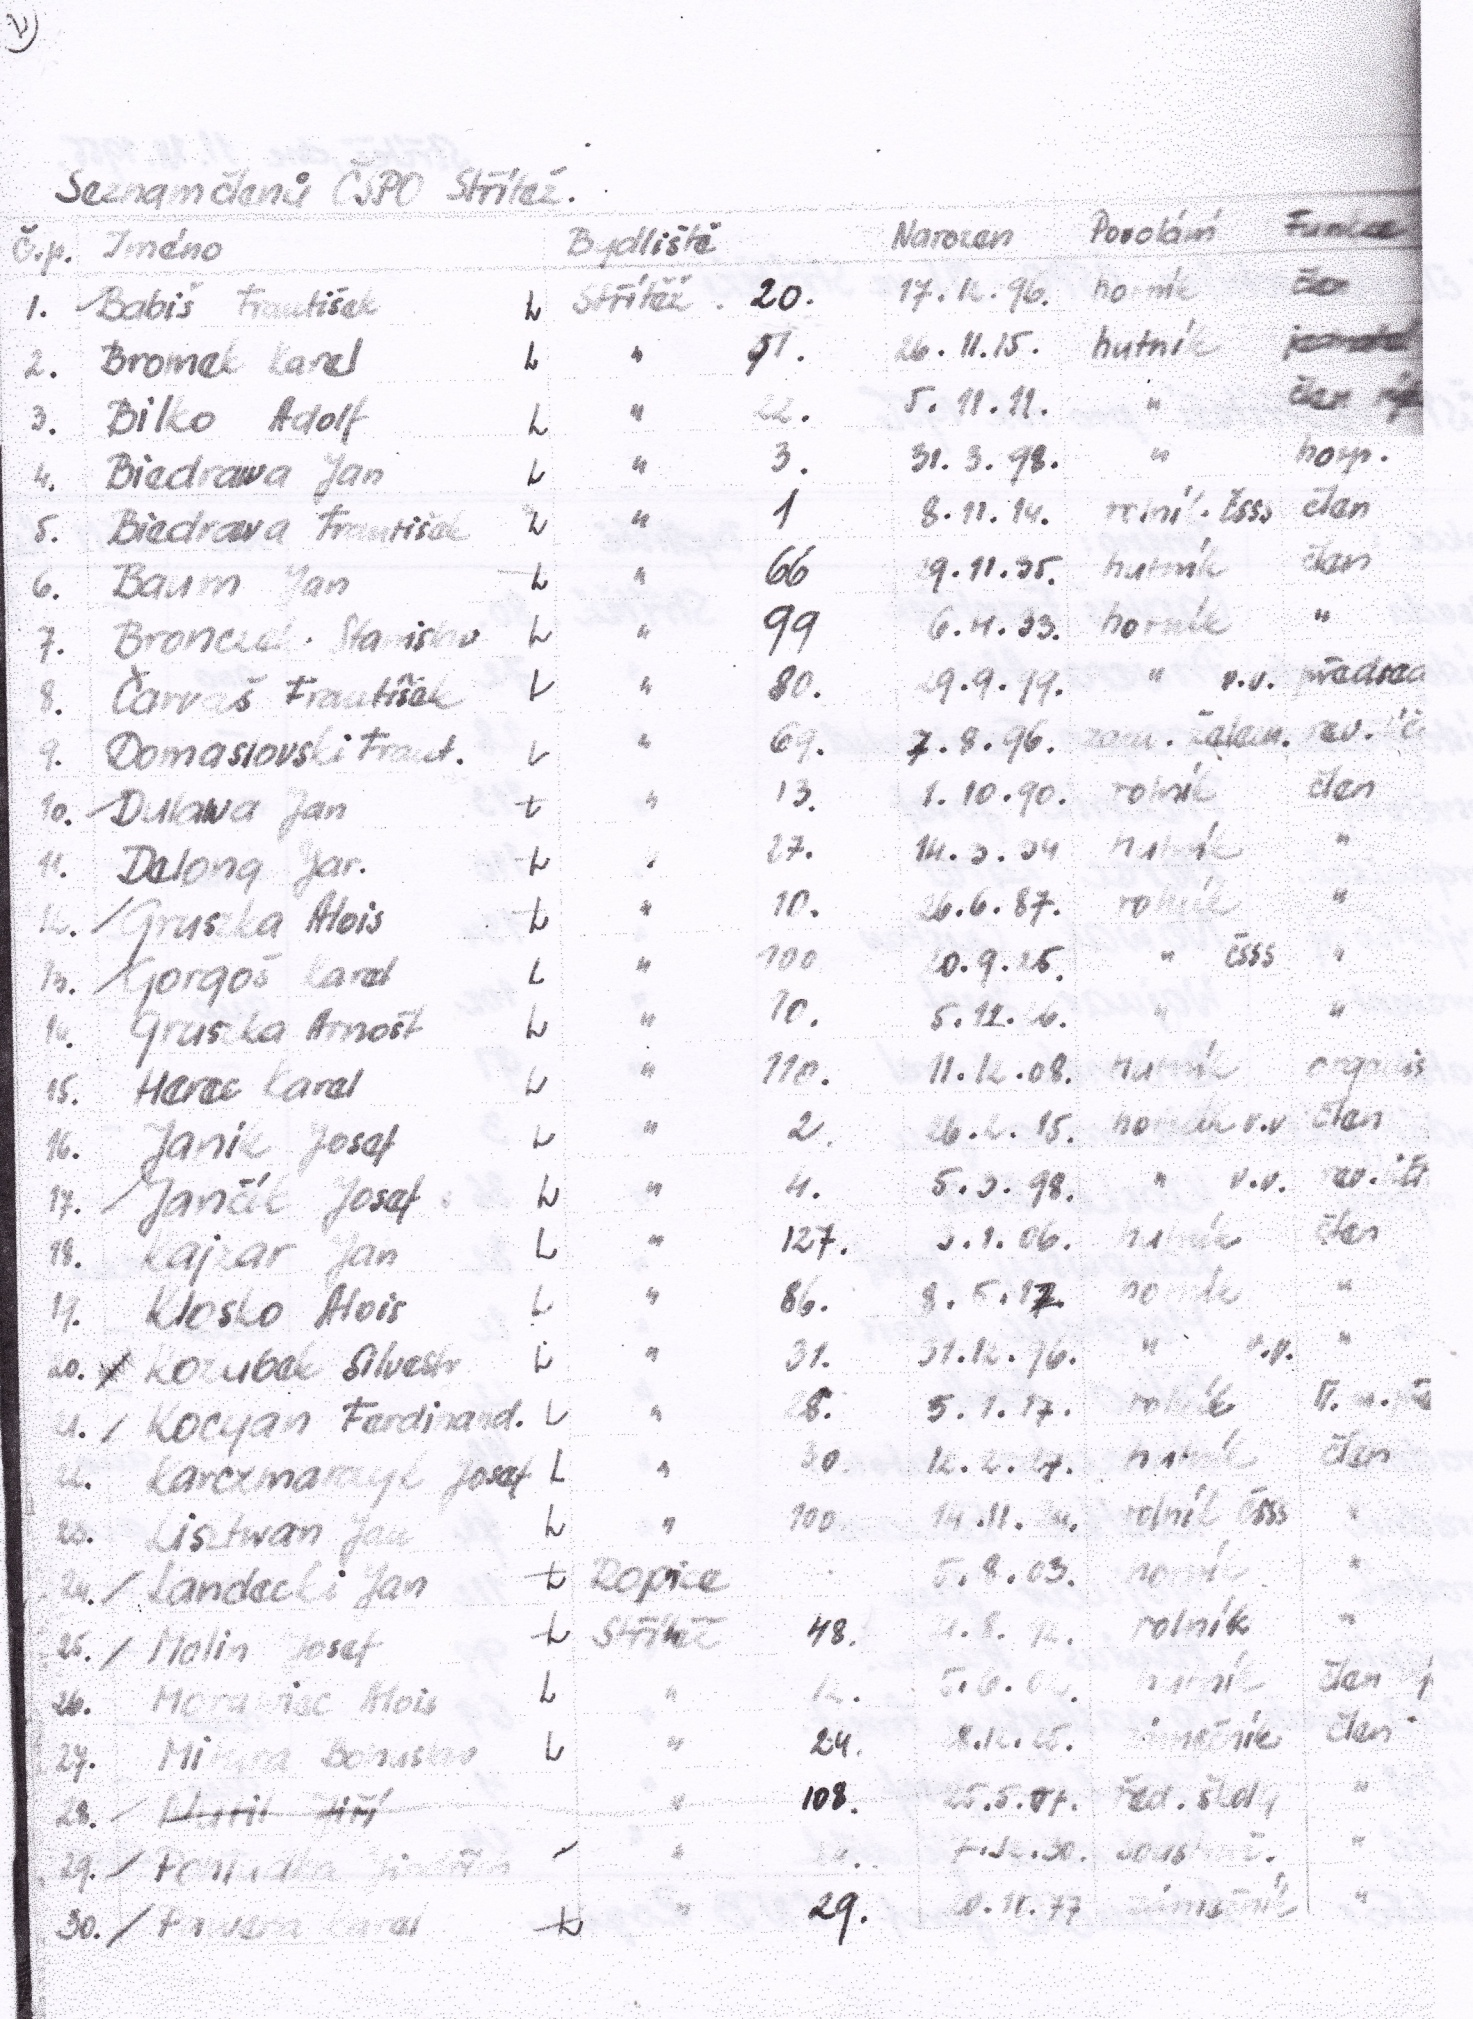 Seznam členů ČSPO Střítež.
Č.p. Jméno Bydliště Narozen Povolání Funkce
1. Babiš František L Střítež. 20. 17.12.96. horník člen
2. Bromek Karel L " 51. 26.11.15. hutník
3. Bilko Adolf L " 22. 5.11.11. " člen
4. Biedrawa Jan L " 3. 31.3.98. " hosp.
5. Biedrava František L " 1 8.11.14. rolník. čsss člen
6. Baum Jan L " 66 29.11.35. hutník člen
7. Bronczek Stanislav L " 99 6.4.33. horník "
8. Čarvaš František L " 80. 29.9.99. " v.v. předsed
9. Domaslovski Frant. L " 69. 7.8.96. zam. rev.
10. Dulawa Jan L " 13. 1.10.90. rolník člen
11. Delong Jar. L 27. 14.3.34 hutník "
12. Gruszka Alois L " 10. 26.6.87. rolník "
13. Gorgoš Karel L " 100 20.9.25. " čsss "
14. Gruszka Arnošt L " 10. 5.11.26. " "
15. Herec Karel L " 110. 11.12.08. hutník
16. Janik Josef L " 2. 26.2.15. horník v.v. člen
17. Jančík Josef L " 4. 5.3.98. " v.v. rev.
18. Kajzar Jan L " 127. 3.1.06. hutník člen
19. Klosko Alois L " 86. 8.5.17. horník "
20. Kozubek Silvestr L " 31. 31.12.96. " v.v. "
21. Kocyan Ferdinand. L " 28. 5.1.17. rolník
22. Karczmarczyk Josef L " 30. 12.2.27. hutník člen
23. Lisztwan Jan L " 100 14.11. rolník čsss "
24. Landecki Jan L Ropice 5.8.03. horník "
25. Molin Josef L Střítež 48. rolník "
26. Morawiec Alois L " 12. hutník člen
27. Mitura Bohuslav L " 24. zámečník člen
28. Jiří " 108. 25.5. řed. školy "
29. "
30. Karel L " 29. 20.11.77 zámečník "